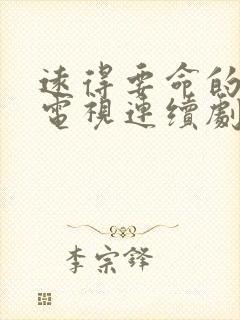 遠得要命的
電視連續劇
李宗鋒